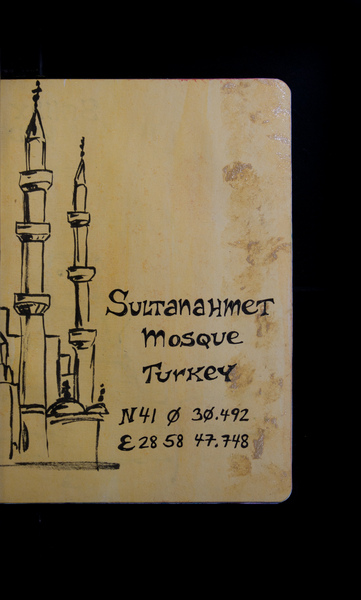 Sultanahmet
Mosque
Turkey
N41 0 30.492
E 28 58 47.748